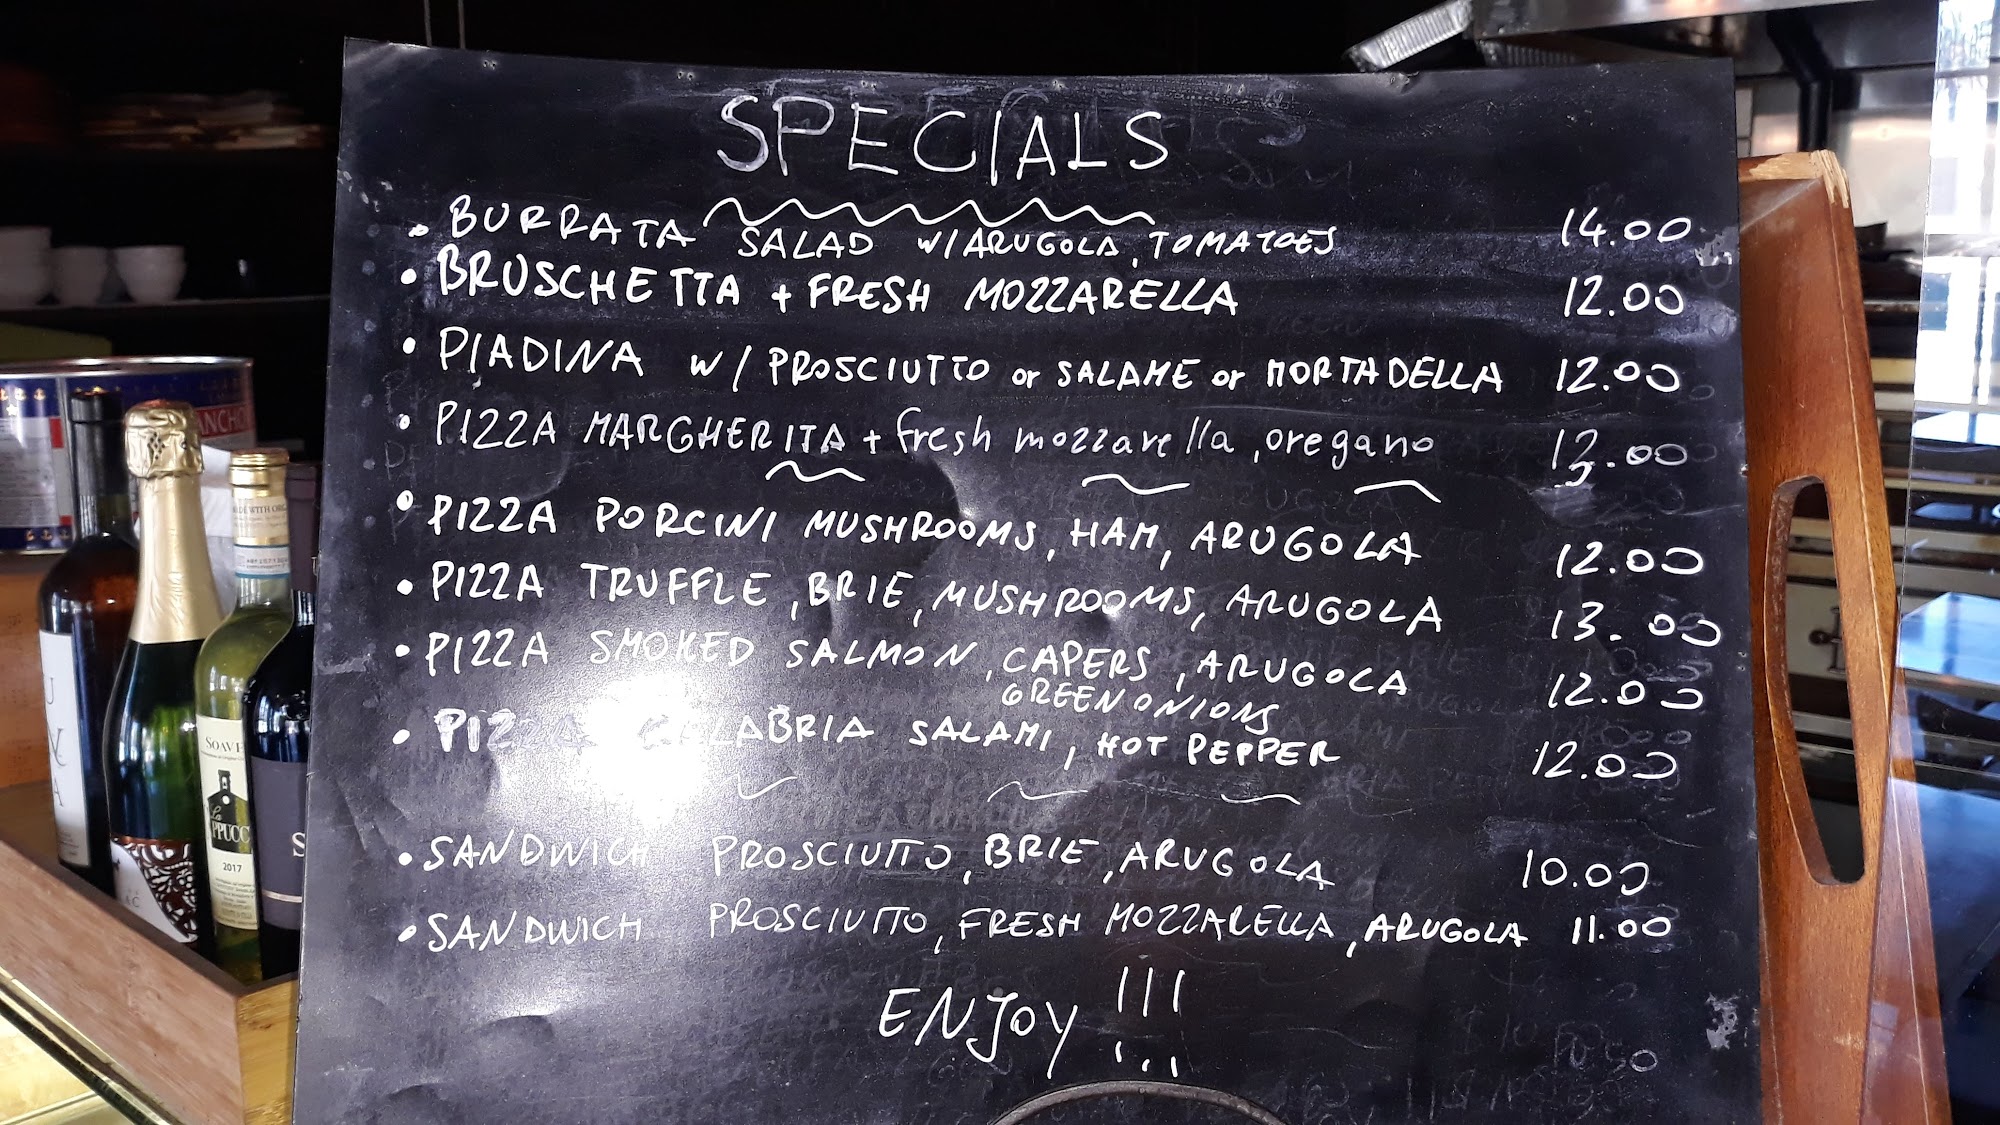 SPECIALS
• BURRATA SALAD W/ARUGOLA, TOMATOES 14.00
• BRUSCHETTA + FRESH MOZZARELLA 12.00
• PIADINA W/ PROSCIUTTO or SALAME or MORTADELLA 12.00
• PIZZA MARGHERITA + fresh mozzarella, oregano
• PIZZA PORCINI MUSHROOMS, HAM, ARUGOLA 12.00
• PIZZA TRUFFLE, BRIE, MUSHROOMS, ARUGOLA 13.00
• PIZZA SMOKED SALMON, CAPERS, ARUGOLA 12.00
GREEN ONIONS
• PIZZA CALABRIA SALAMI, HOT PEPPER 12.00
• SANDWICH PROSCIUTTO, BRIE, ARUGOLA 10.00
• SANDWICH PROSCIUTTO, FRESH MOZZARELLA, ARUGOLA 11.00
ENJOY !!!
SOAVE
2017